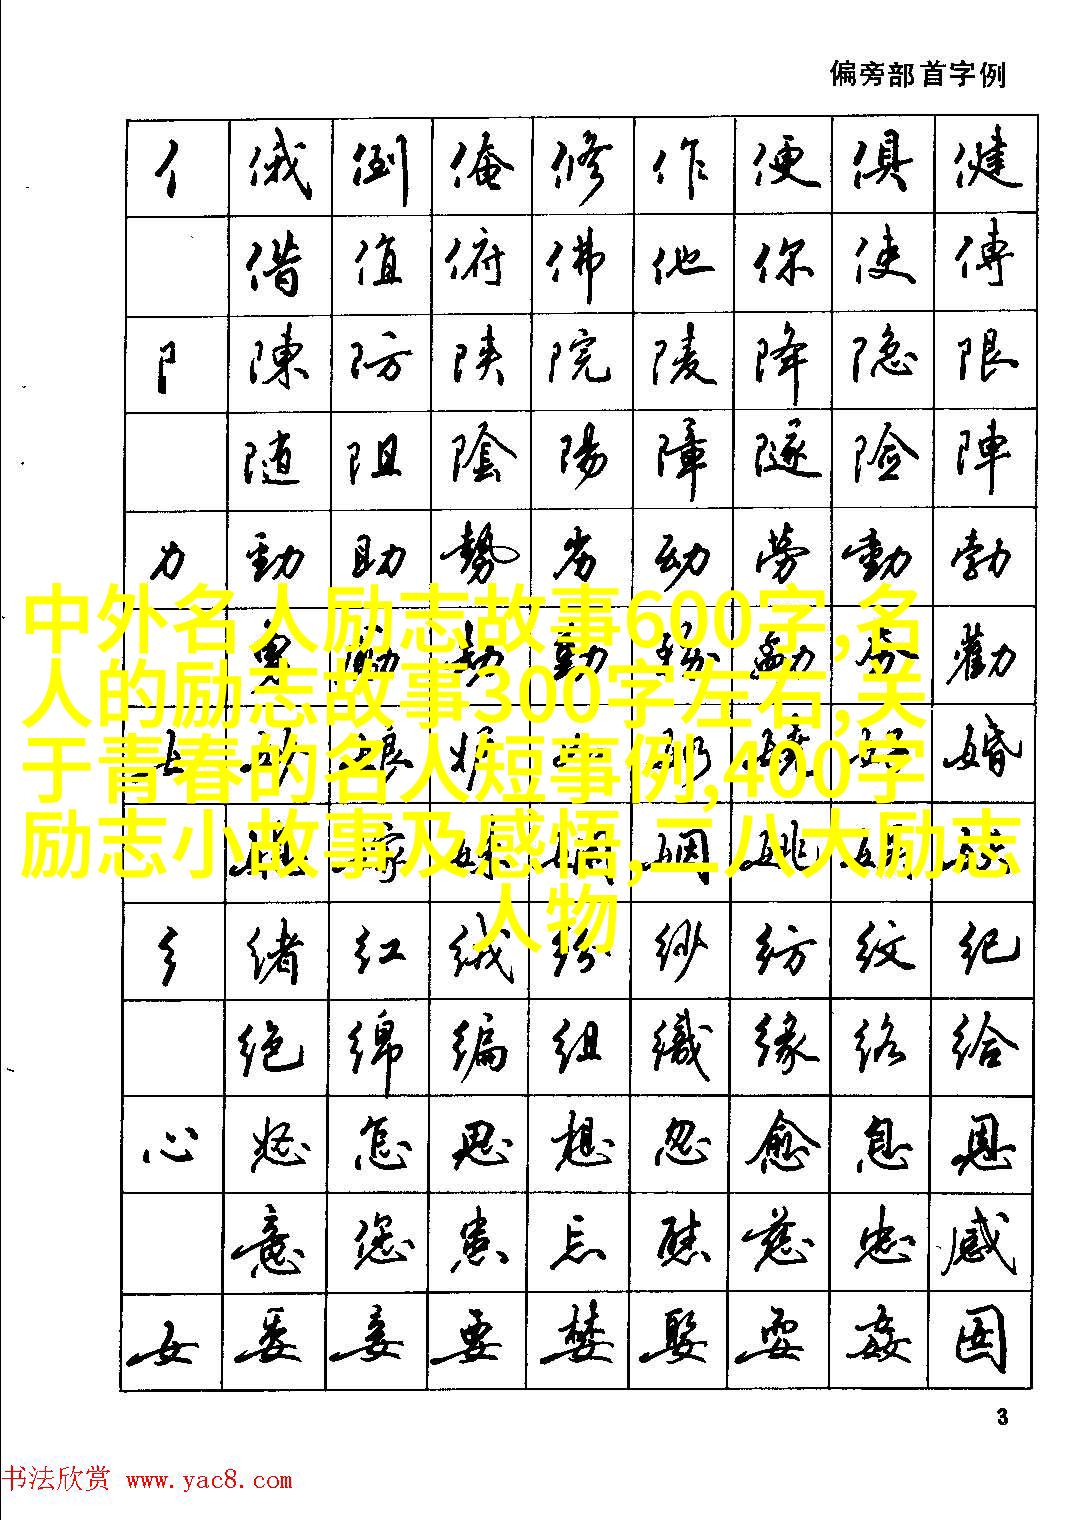 偏旁部首字例
亻 俄 倒 俺 修 作 便 俱 健
借 值 俯 佛 他 你 使 傅
阝 陳 防 陕 院 陵 降 隐 限
随 阻 陰 陽 障 隧 险 陣
力 動 助 勢 劣 动 劳 勤 勃
勇 勸
中外名人励志故事600字,名
人的励志故事300字左右,关
于青春的名人短事例,400字
励志小故事及感悟,二八大励志
人物
婚
姻 姚
纟 绪 红 绒 纷 纱 纺 纹 纪
绝 绵 编 组 織 缘 络 给
心 怒 怎 思 想 忽 愈 息 恩
意 您 患 忘 慈 忠 感
女 委 妾 要 婪 娶 耍 姦
3
书法欣赏 www.yac8.com